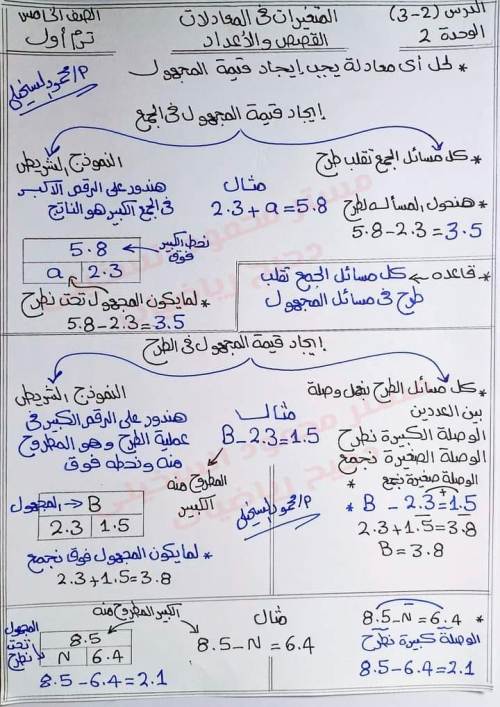 الدرس (2-3)
الوحدة 2
المتغيرات فى المعادلات
القصص والأعداد
الصف الخامس
ترم أول
* لحل أى معادلة يجب إيجاد قيمة المجهول
إيجاد قيمة المجهول فى الجمع
* كل مسائل الجمع تقلب طرح
* هنحول المسأله لطرح
5.8 - 2.3 = 3.5
مثال
2.3 + a = 5.8
النموذج الشريطى
هندور على الرقم الأكبر
فى الجمع الكبير هو الناتج
نحط الكبير
فوق
5.8
a 2.3
* لما يكون المجهول تحت نطرح
5.8 - 2.3 = 3.5
* قاعده ← كل مسائل الجمع تقلب
طرح فى مسائل المجهول
إيجاد قيمة المجهول فى الطرح
* كل مسائل الطرح بنعمل وصلة
بين العددين
الوصلة الكبيرة نطرح
الوصلة الصغيرة نجمع
* الوصلة صغيرة نجمع *
* B - 2.3 = 1.5
+
2.3 + 1.5 = 3.8
B = 3.8
مثال
B - 2.3 = 1.5
المطروح منه
الكبير
النموذج الشريطى
هندور على الرقم الكبير فى
عملية الطرح وهو المطروح
منه ونحطه فوق
المجهول → B
2.3 1.5
* لما يكون المجهول فوق نجمع
2.3 + 1.5 = 3.8
* 8.5 - N = 6.4
الوصلة كبيرة نطرح
8.5 - 6.4 = 2.1
مثال
8.5 - N = 6.4
الكبير المطروح منه
8.5
N 6.4
المجهول
تحت
نطرح
8.5 - 6.4 = 2.1